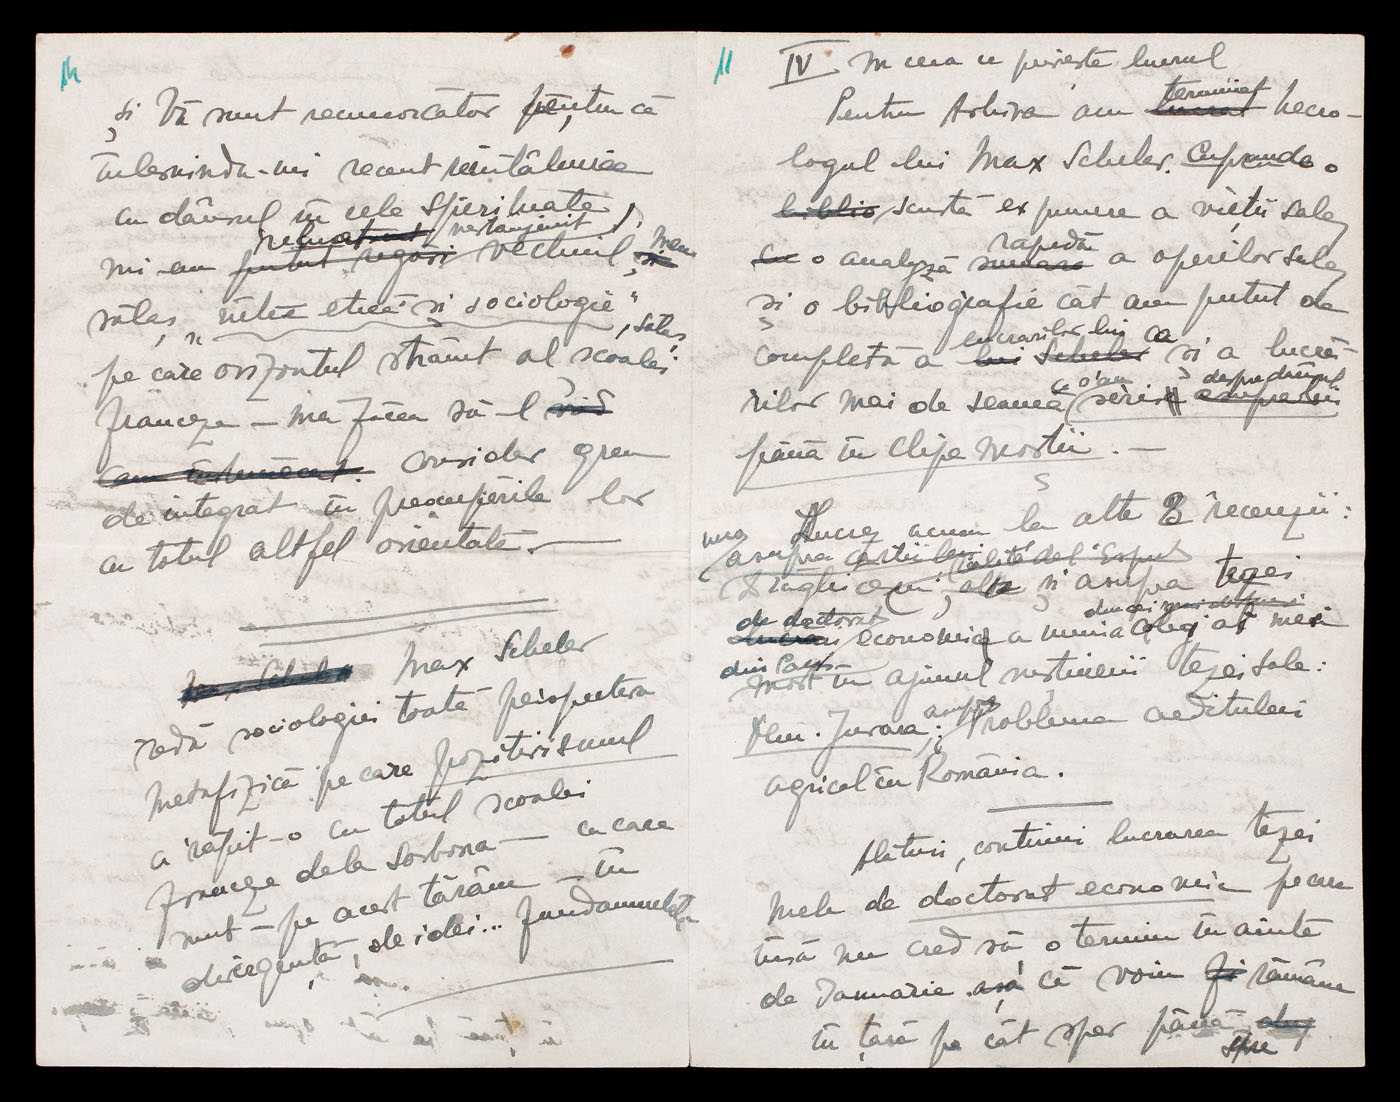 și Vă sunt recunoscător pentru că
înlesnindu-mi recent reîntâlnirea
cu dânsul în cele Spirituale,
neîngrădit
mi-am putut regăsi vechiul, meu
sălaș "între etică și sociologie", sălaș
pe care orizontul strâmt al școalei
franceze — mă făcea să-l
consider greu
de integrat în preocupările lor
cu totul altfel orientate. —
Max Scheler
Max Scheler
redă sociologiei toată perspectiva
metafizică pe care pozitivismul
a răpit-o cu totul școalei
franceze dela Sorbona — cu care
sunt — pe acest tărâm — în
divergență, de idei... fundamentală
11
IV În ceea ce privește lucrul
terminat
Pentru Arhiva am lucrat necro-
logul lui Max Scheler. Cuprinde o
biblio scurtă expunere a vieții sale,
rapidă
cu o analyză sumară a operilor sale,
și o bibliografie cât am putut de
lucrărilor lui ca
completă a lui Scheler și a lucră-
ce s'au despre dânsul
rilor mai de seamă scris asupra lui
până în clipa morții. —
Lucrez acum la alte 3 recenzii:
una
asupra cărții lui
Draghicescu, alta și asupra tezei
de doctorat
lucrări economice a unui coleg al meu
din Paris
mort în ajunul susținerii tezei sale:
asupra
Dem. Juvara: Problema creditului
agricol în România.
Alături, continui lucrarea tezei
mele de doctorat economic pe care
însă nu cred să o termin înainte
de Ianuarie așa că voiu fi rămâne
în țară pe cât sper până
spre